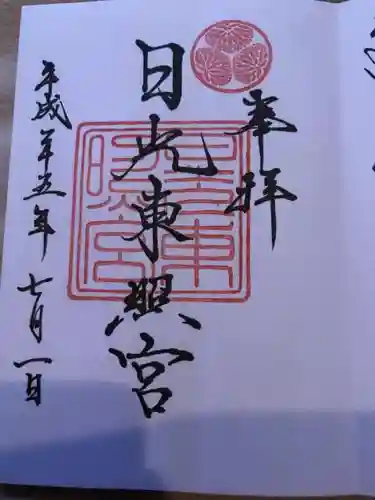 奉拝
日光東照宮
平成廿五年七月一日